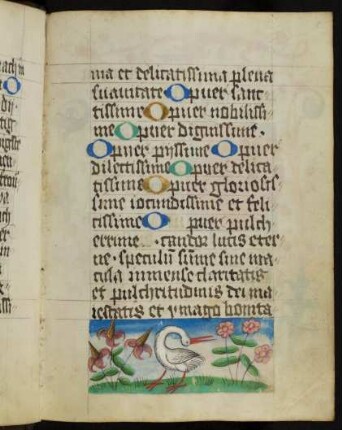 ma et delicatissima plena
suauitate O puer sanc
tissime O puer nobilissi
me O puer dignissime .
O puer piissime O puer
dilectissime O puer delica
tissime O puer gloriosis
sime iocundissime et feli
cissime O puer pulch
errime . candor lucis eter
ne . speculū sine ma
cula inmense claritatis
et pulchritudinis dei ma
iestatis et ymago bonita